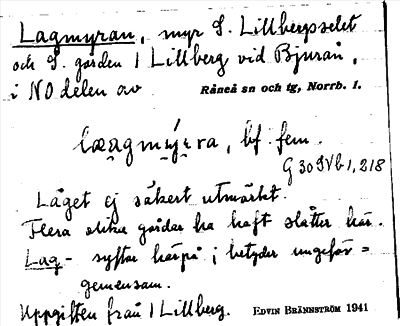 Lagmyran, myr S. Lillbergsselet
och S. gården 1 Lillberg vid Bjurån,
i NO delen av Råneå sn och tg, Norrb. l.
læagmýrra, bf fem.
G30SVb1,218
Läget ej säkert utmärkt.
Flera olika gårdar ha haft slåtter här.
Lag- syftar härpå; betyder ungefär =
gemensam.
Uppgiften från 1 Lillberg. EDVIN BRÄNNSTRÖM 1941